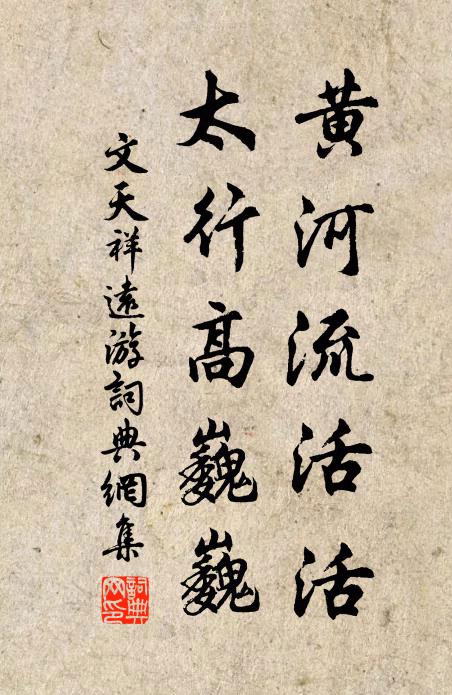 黄河流活活
太行高巍巍
文天祥遠游詞典網集
詞典網印